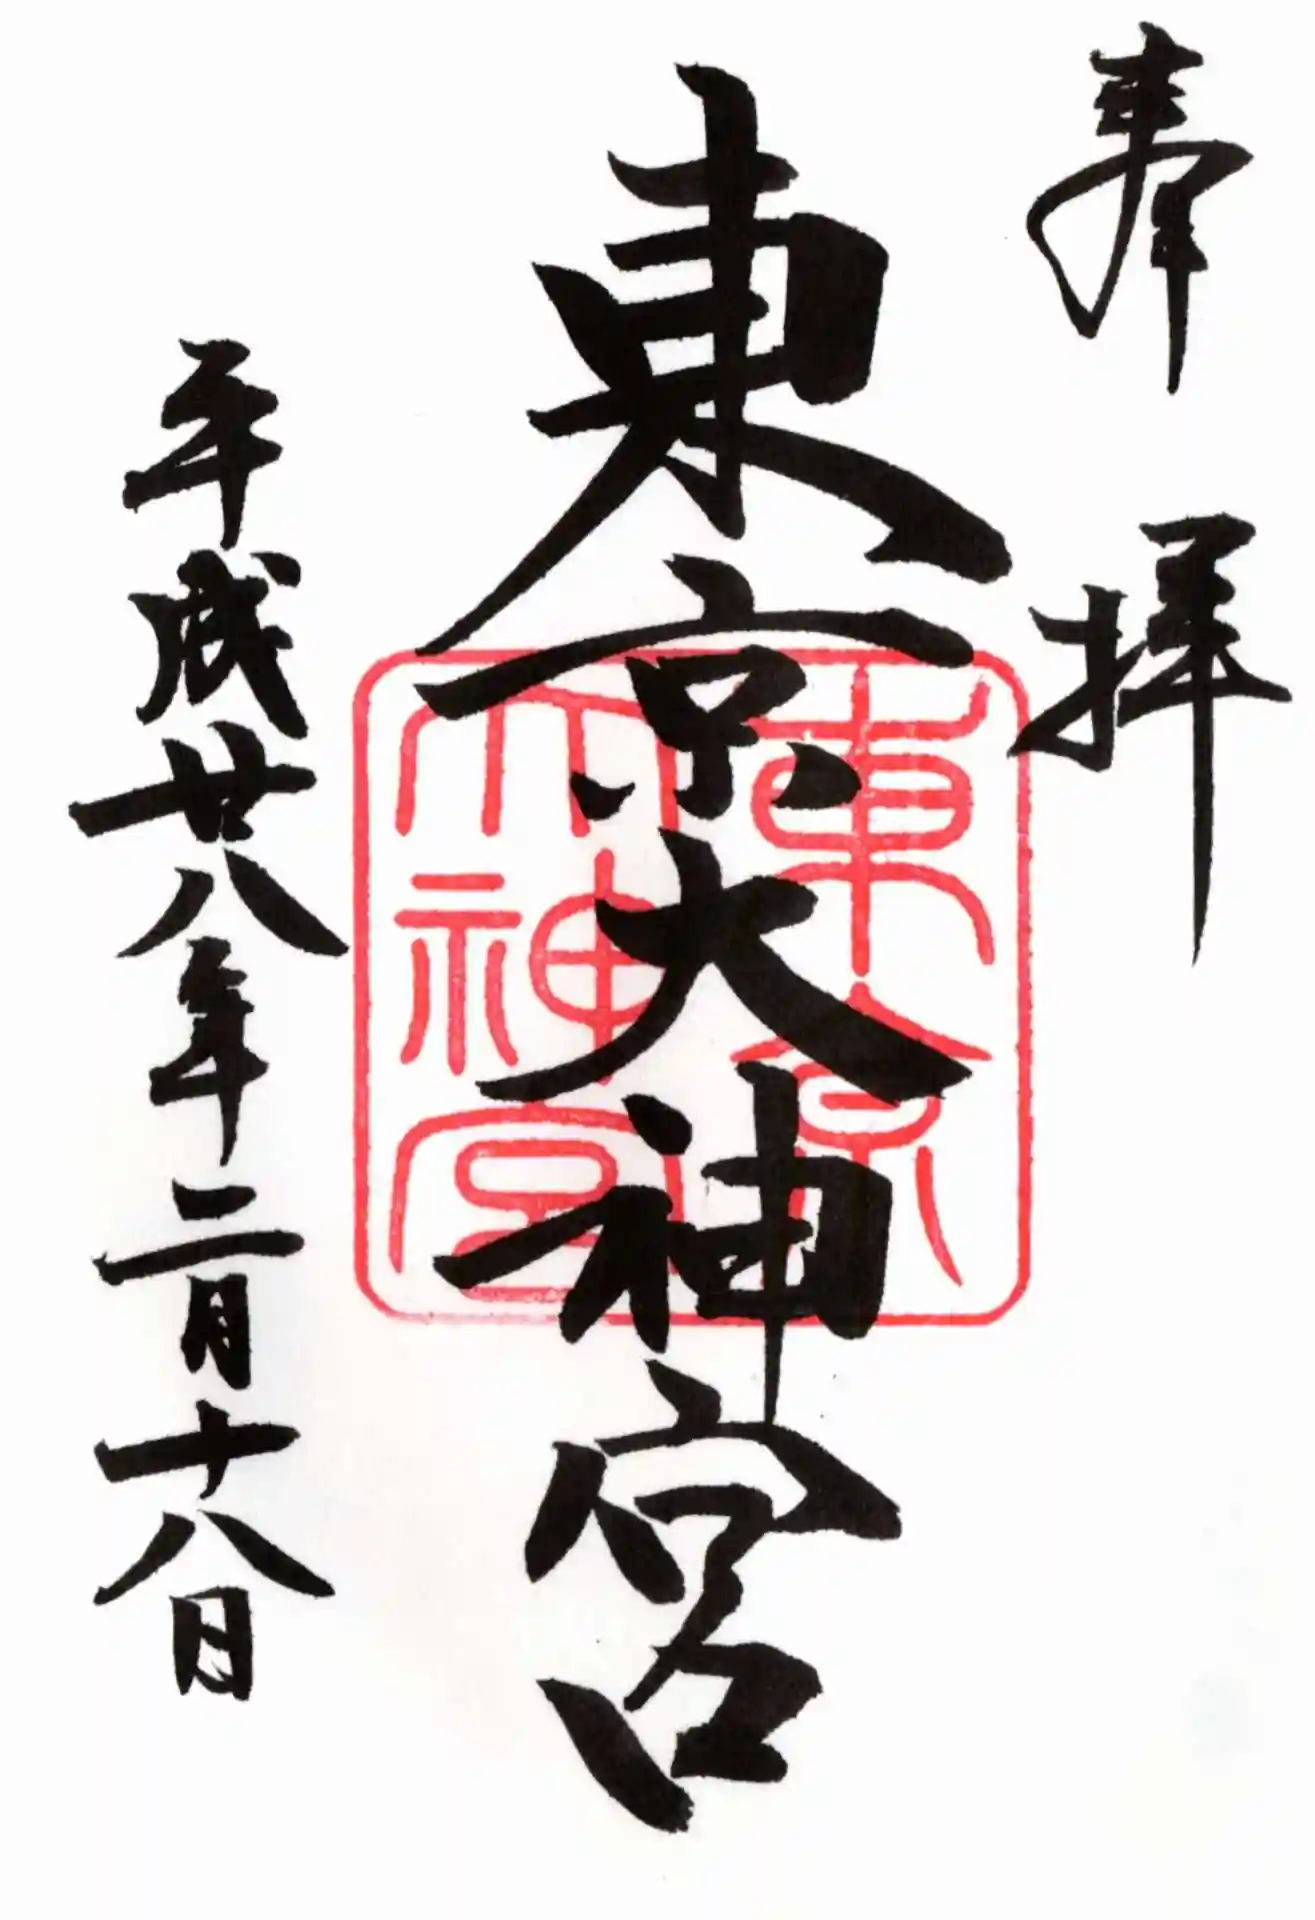 奉拝
東京大神宮
東京
大神宮
平成廿八年二月十八日